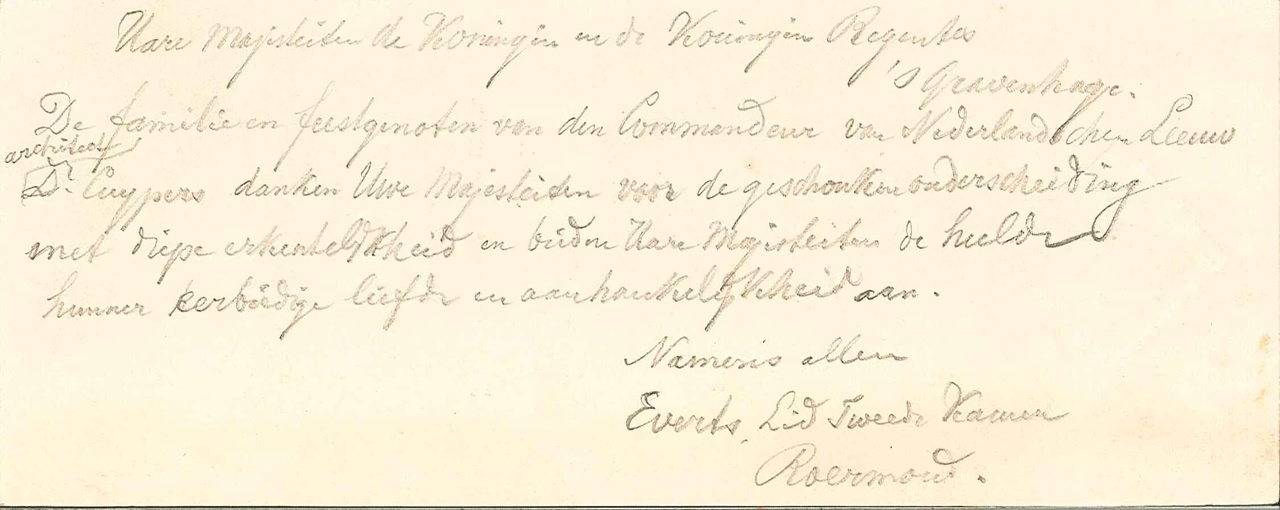 Hare Majesteiten de Koningin en de Koningin Regentes
's Gravenhage.
De familie en feestgenoten van den Commandeur van Nederlandschen Leeuw
architect
Dr. Cuypers danken Uwe Majesteiten voor de geschonken onderscheiding
met diepe erkentelijkheid en bieden Hare Majesteiten de hulde
hunner eerbiedige liefde en aanhankelijkheid aan.
Namens allen
Everts, Lid Tweede Kamer
Roermond.